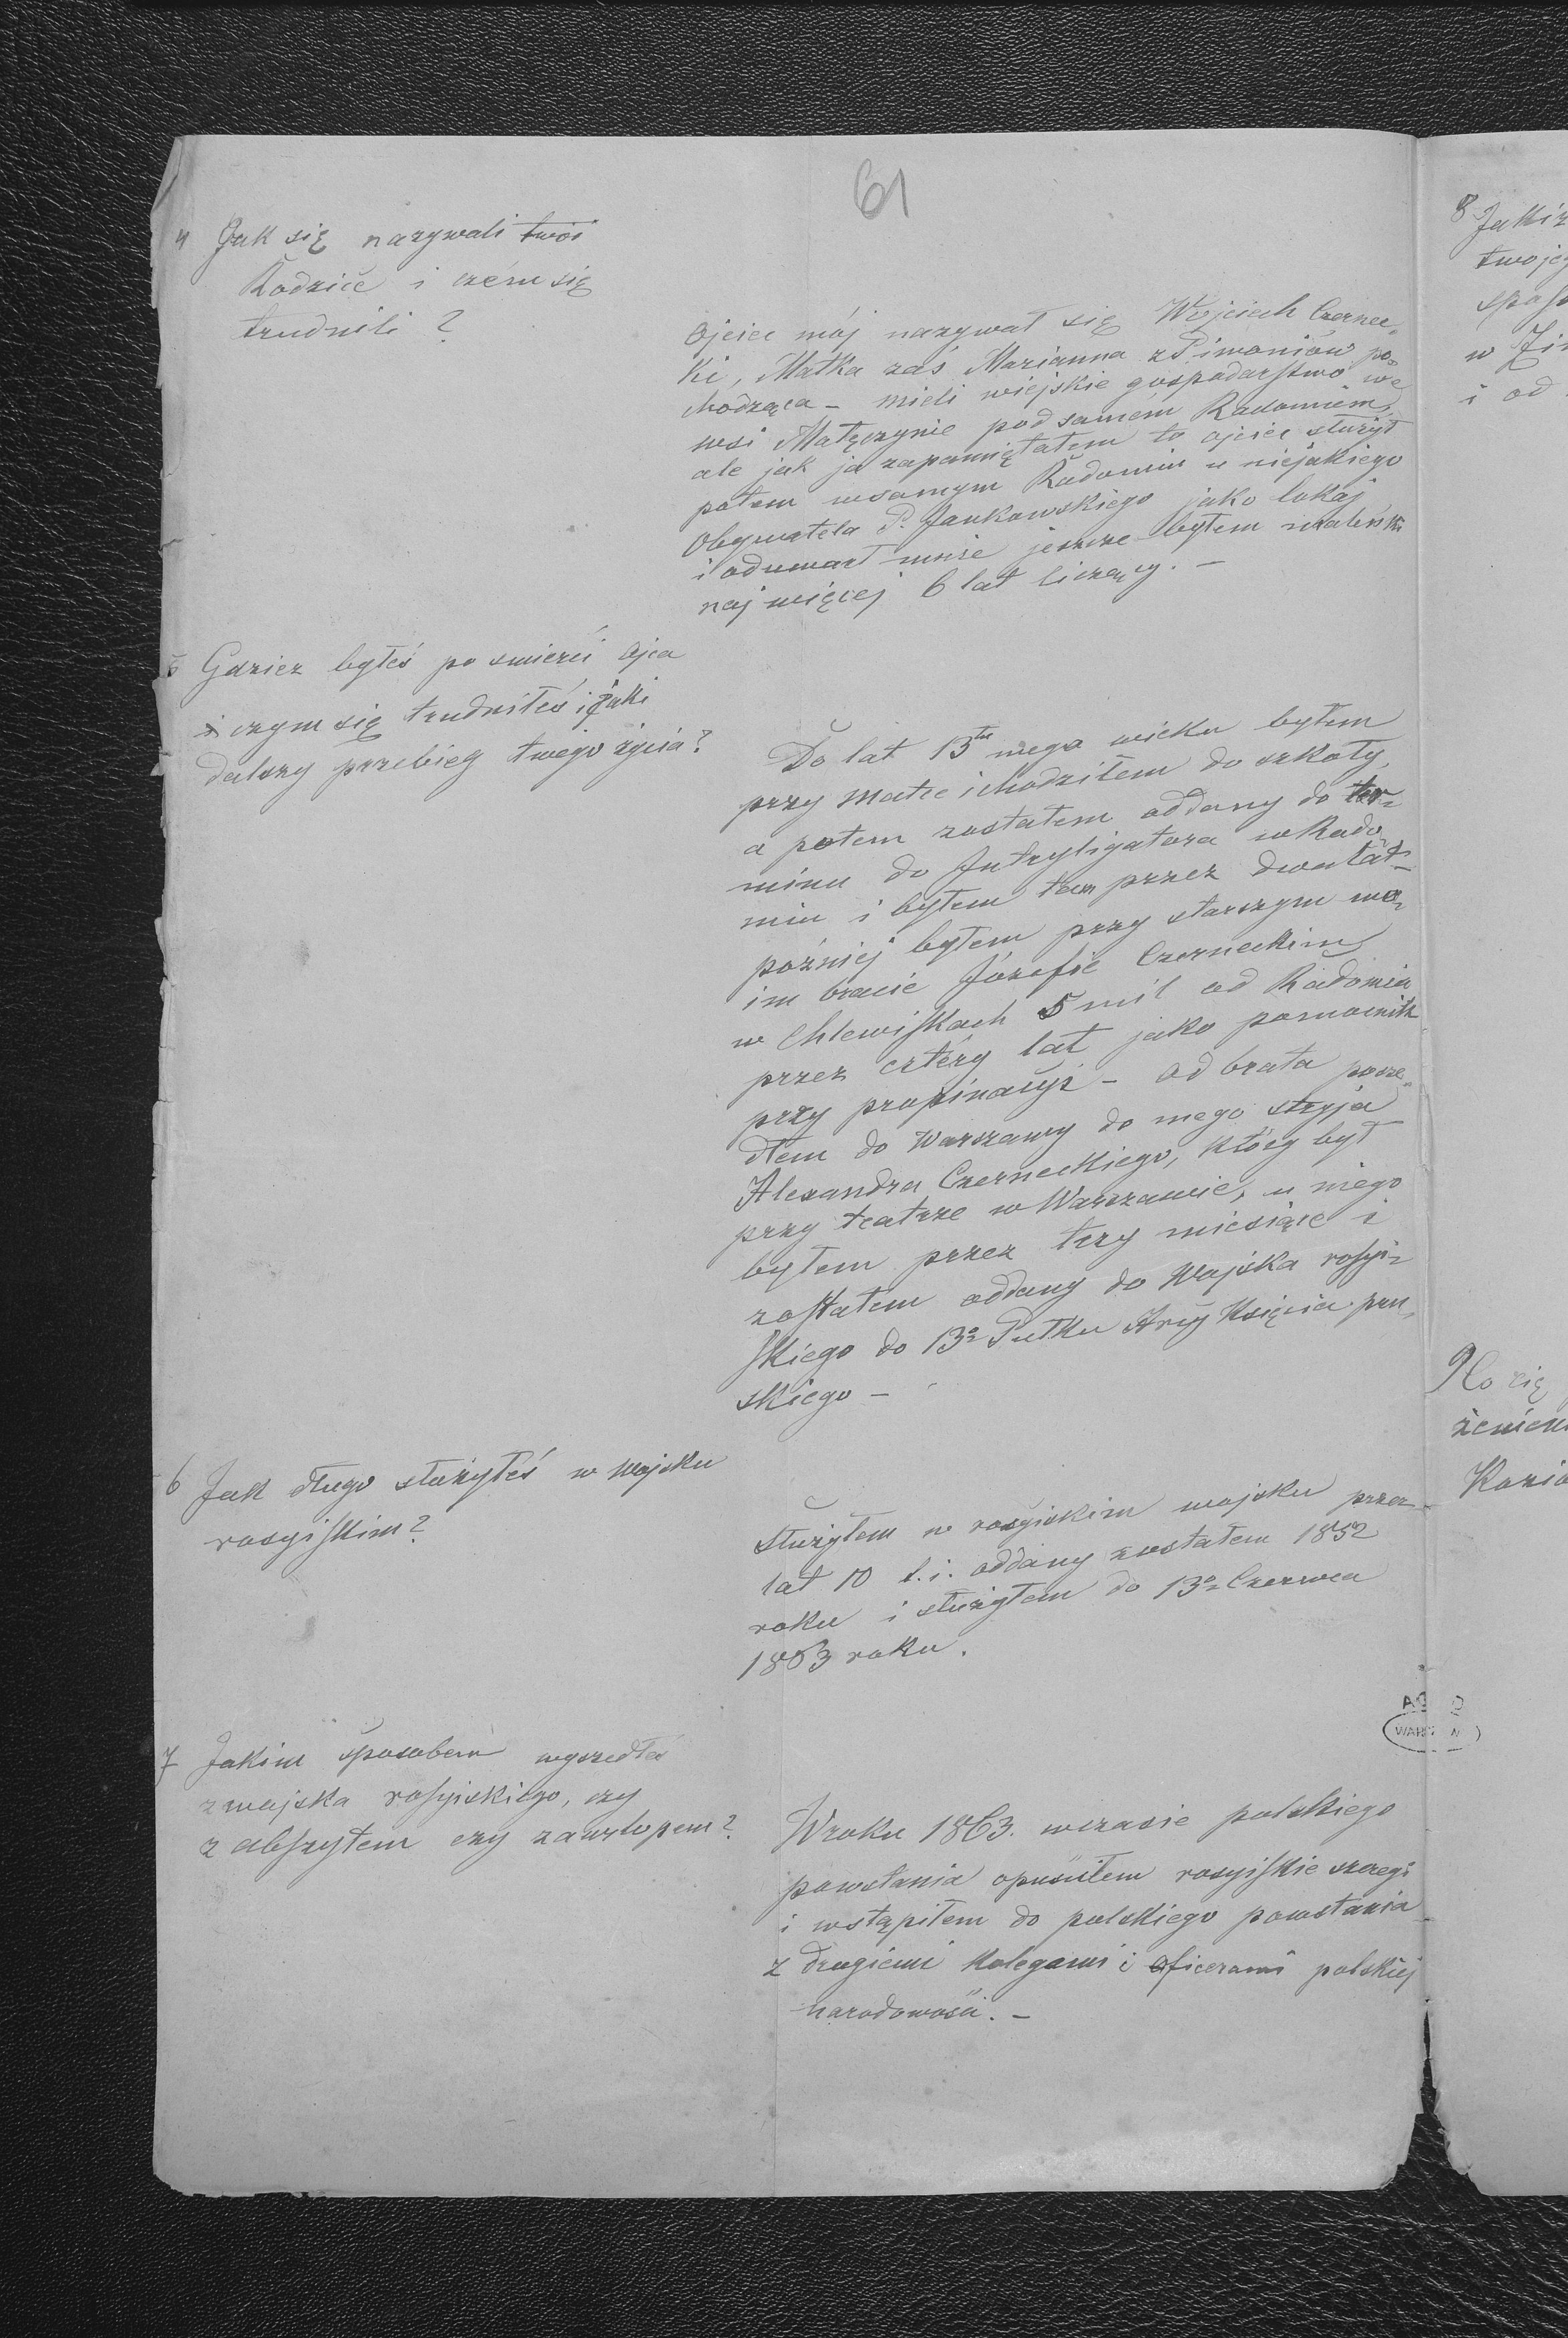 61
4 Jak się nazywali twoi
Rodzice i czém się
trudnili?
Ojciec mój nazywał się Wojciech Czernec„
ki, Matka zaś Marianna z Pimoniów po„
chodząca – mieli wiejskie gospodarstwo we
wsi Małęczynie pod samém Radomiem,
ale jak ja zapamiętałem to ojciec służył
potem wsamym Radomiu u niejakiego
Obywatela P. Jankowskiego jako lokaj
i odumarł mnie jeszcze byłem
najwięcej 6 lat liczący. –
5 Gdzież byłeś po smierci Ojca
i czym się trudniłeś i jaki
dalszy przebieg twego życia?
Do lat 13tu mego wieku byłem
przy matce i chodziłem do szkoły,
a potem zostałem oddany do ter„
minu do Introligatora w Rado„
miu i byłem tam przez dwa lat –
poźniej byłem przy starszym mo„
im bracie Józefie Czerneckim
w Chlewiskach 5 mil od Radomia
przez cztéry lat jako pomocnik
przy propinacyi – od brata posze„
dłem do Warszawy do mego stryja
Alexandra Czerneckiego, który był
przy teatrze w Warszawie, u niego
byłem przez trzy miesiące i
zostałem oddany do Wojska rosyi„
skiego do 13o Pułku Arcy Księcia pru„
skiego –
6 Jak długo służyłeś w wojsku
rosyiskim?
Służyłem w rosyiskim wojsku przez
lat 10 t.i. oddany zostałem 1852
roku i służyłem do 13o Czerwca
1863 roku.
7 Jakim sposobem wyszedłeś
z wojska rosyiskiego, czy
z abszytem czy zaurlopem?
Wroku 1863. wczasie polskiego
powstania opuściłem rosyiskie szeregi
i wstąpiłem do polskiego powstania
z drugiemi kolegami i oficerami polskiej
narodowości. –
8 Jakiż
twojeg
w
i od
9 Co się
żenien